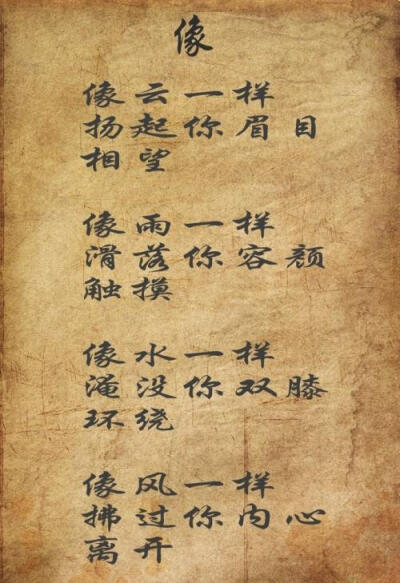 像
像云一样
扬起你眉目
相望
像雨一样
滑落你容颜
触摸
像水一样
淹没你双膝
环绕
像风一样
拂过你内心
离开